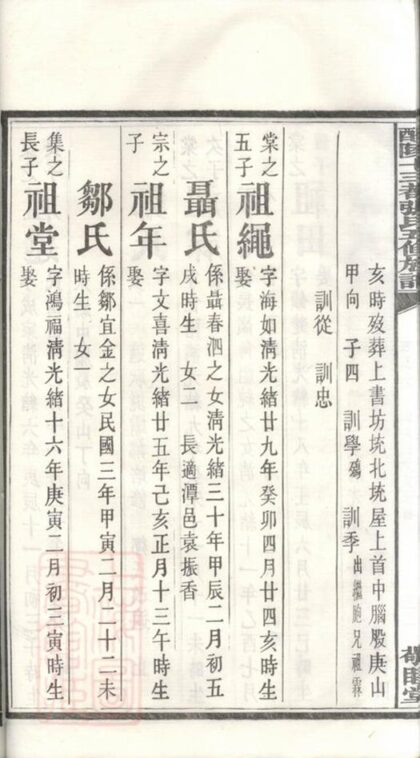 亥時歿葬上書坊坑北坑屋上首中腦股庚山
甲向 子四 訓學殤 訓季出撫胞兄祖霖
訓從 訓忠
棠之五子 祖繩 字海如清光緒廿九年癸卯四月廿四亥時生
娶 聶氏 係聶春泗之女清光緒三十年甲辰二月初五
戌時生 女二 長適潭邑袁振香
宗之子 祖年 字文喜清光緒廿五年己亥正月十三午時生
娶 鄒氏 係鄒宜金之女民國三年甲寅二月二十二未
時生 女一
集之長子 祖堂 字鴻福清光緒十六年庚寅二月初三寅時生
娶
敬睦堂